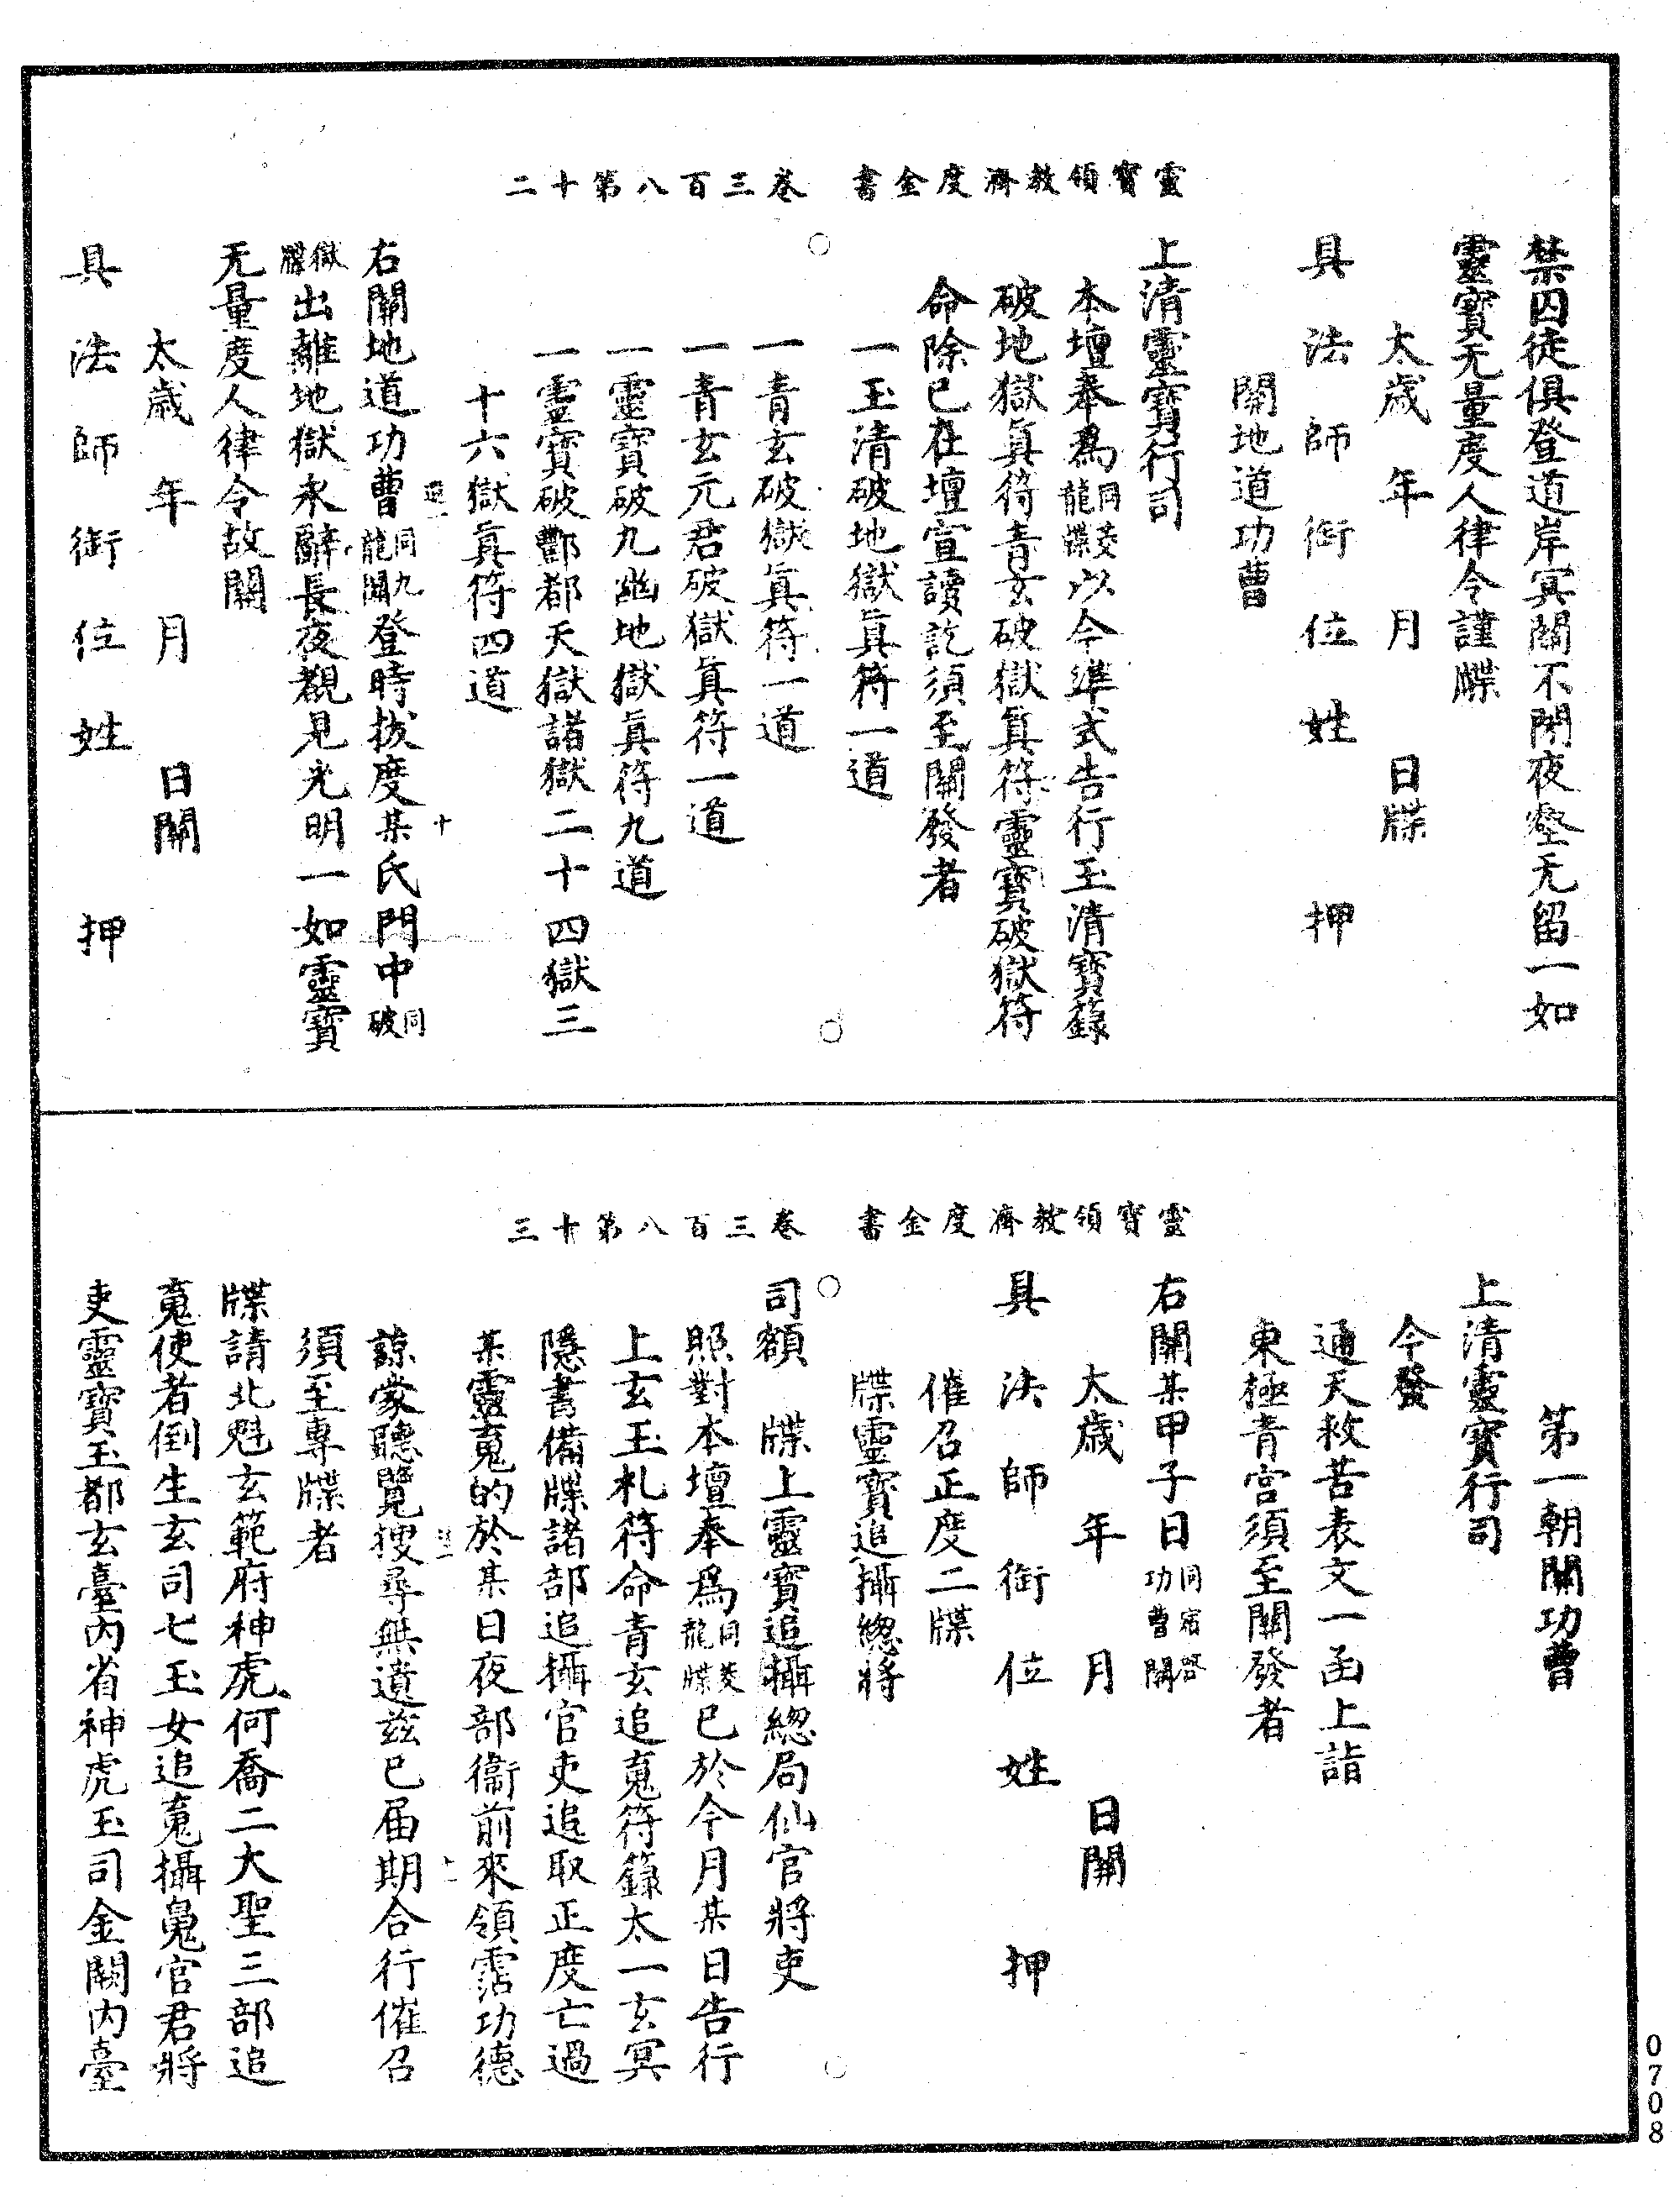 靈寶領教濟度金書　卷三百八第十二
禁囚徒俱登道岸冥關不閉夜壑无留一如
靈寶无量度人律令謹牒
太歲　年　月　日牒
具法師銜位姓　押
關地道功曹
上清靈寶行司
本壇奉為同茭龍牒以今準式告行玉清寶籙
破地獄真符青玄破獄真符靈寶破獄符
命除已在壇宣讀訖須至關發者
一玉清破地獄真符一道
一青玄破獄真符一道
一青玄元君破獄真符一道
一靈寶破九幽地獄真符九道
一靈寶破酆都天獄諸獄二十四獄三
十六獄真符四道
右關地道功曹同九龍關登時拔度某氏門中同破
獄牒出離地獄永辭長夜覩見光明一如靈寶
无量度人律令故關
太歲　年　月　日關
具法師銜位姓　押
靈寶領教濟度金書　卷三百八第十三
第一朝關功曹
上清靈寶行司
今發
通天救苦表文一函上詣
東極青宮須至關發者
右關某甲子日同宿啓功曹關
太歲　年　月　日關
具法師銜位姓　押
催召正度二牒
牒靈寶追攝總將
司額　牒上靈寶追攝總局仙官將吏
照對本壇奉為同茭龍牒已於今月某日告行
上玄玉札符命青玄追䰟符籙太一玄冥
隱書備牒諸部追攝官吏追取正度亡過
某靈䰟的於某日夜部衛前來領霑功德
諒蒙聽覽搜尋無遺茲已届期合行催召
須至專牒者
牒請北魁玄範府神虎何喬二大聖三部追
䰟使者倒生玄司七玉女追䰟攝䰟官君將
吏靈寶玉都玄臺內省神虎玉司金闕內臺
0708